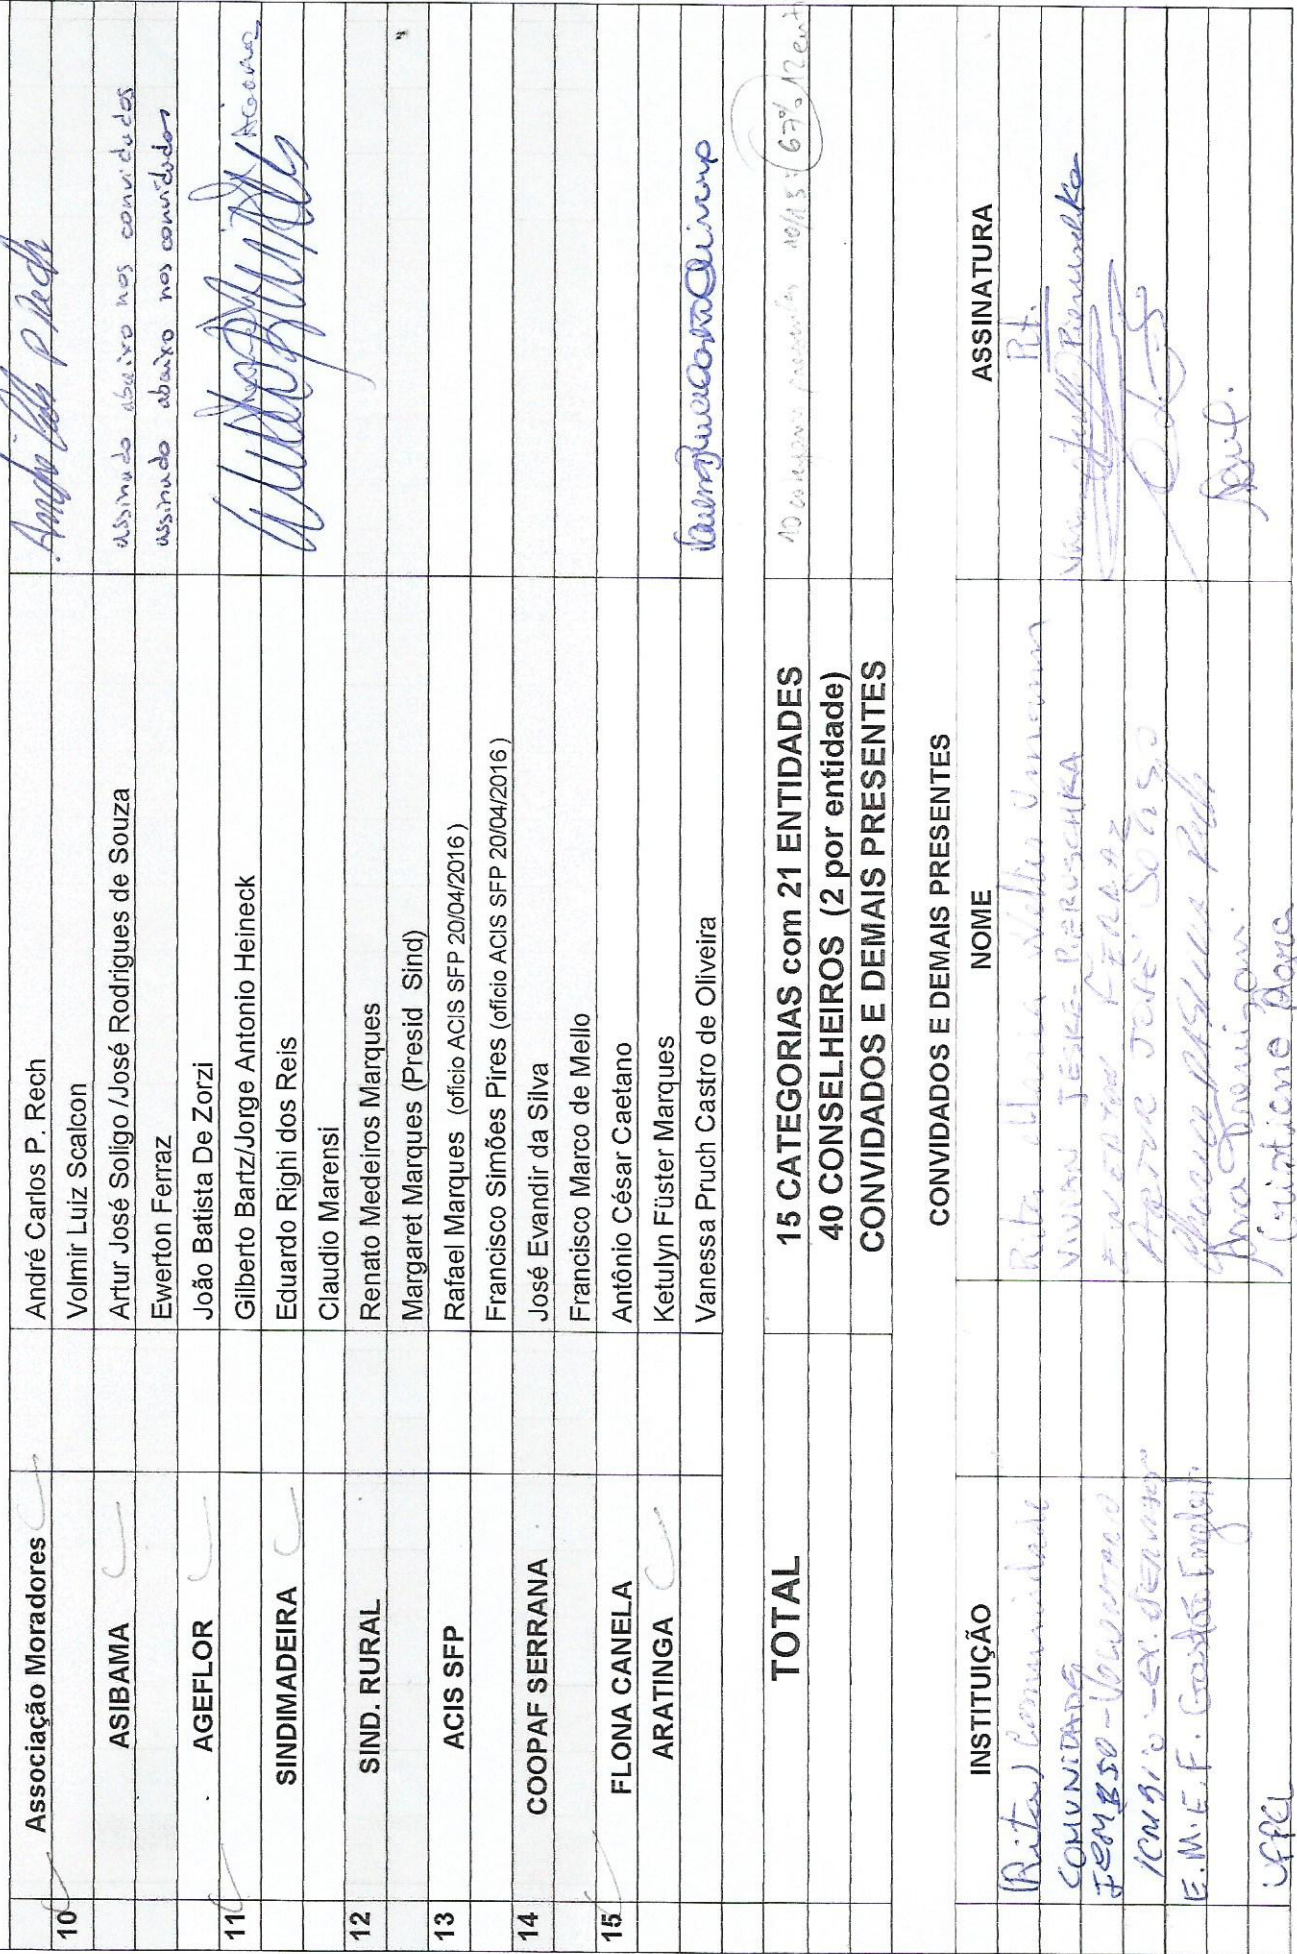 Associação Moradores André Carlos P. Rech André Carlos P Rech
10 Volmir Luiz Scalcon
ASIBAMA Artur José Soligo /José Rodrigues de Souza assinado abaixo nos convidados
Ewerton Ferraz assinado abaixo nos convidados
AGEFLOR João Batista De Zorzi
11 Gilberto Bartz/Jorge Antonio Heineck
SINDIMADEIRA Eduardo Righi dos Reis
Claudio Marensi
12 SIND. RURAL Renato Medeiros Marques
Margaret Marques (Presid Sind) "
13 ACIS SFP Rafael Marques (ofício ACIS SFP 20/04/2016)
Francisco Simões Pires (ofício ACIS SFP 20/04/2016)
14 COOPAF SERRANA José Evandir da Silva
Francisco Marco de Mello
15 FLONA CANELA Antônio César Caetano
ARATINGA Ketulyn Füster Marques
Vanessa Pruch Castro de Oliveira
TOTAL 15 CATEGORIAS com 21 ENTIDADES 10 categorias presentes 10/15: 67% 12 ent
40 CONSELHEIROS (2 por entidade)
CONVIDADOS E DEMAIS PRESENTES
CONVIDADOS E DEMAIS PRESENTES
INSTITUIÇÃO NOME ASSINATURA
(Rita) Comunidade Rita Maria Rt.
COMUNIDADE VIVIAN JESKE-PIERUSCHKA Pieruschka
VOLUNTÁRIO EWERTON FERRAZ
ICMBIO - EX. SERVIDOR ARTUR JOSÉ SOLIGO
E.M.E.F. Rech
Ana
UFPEL Cristiane Dora